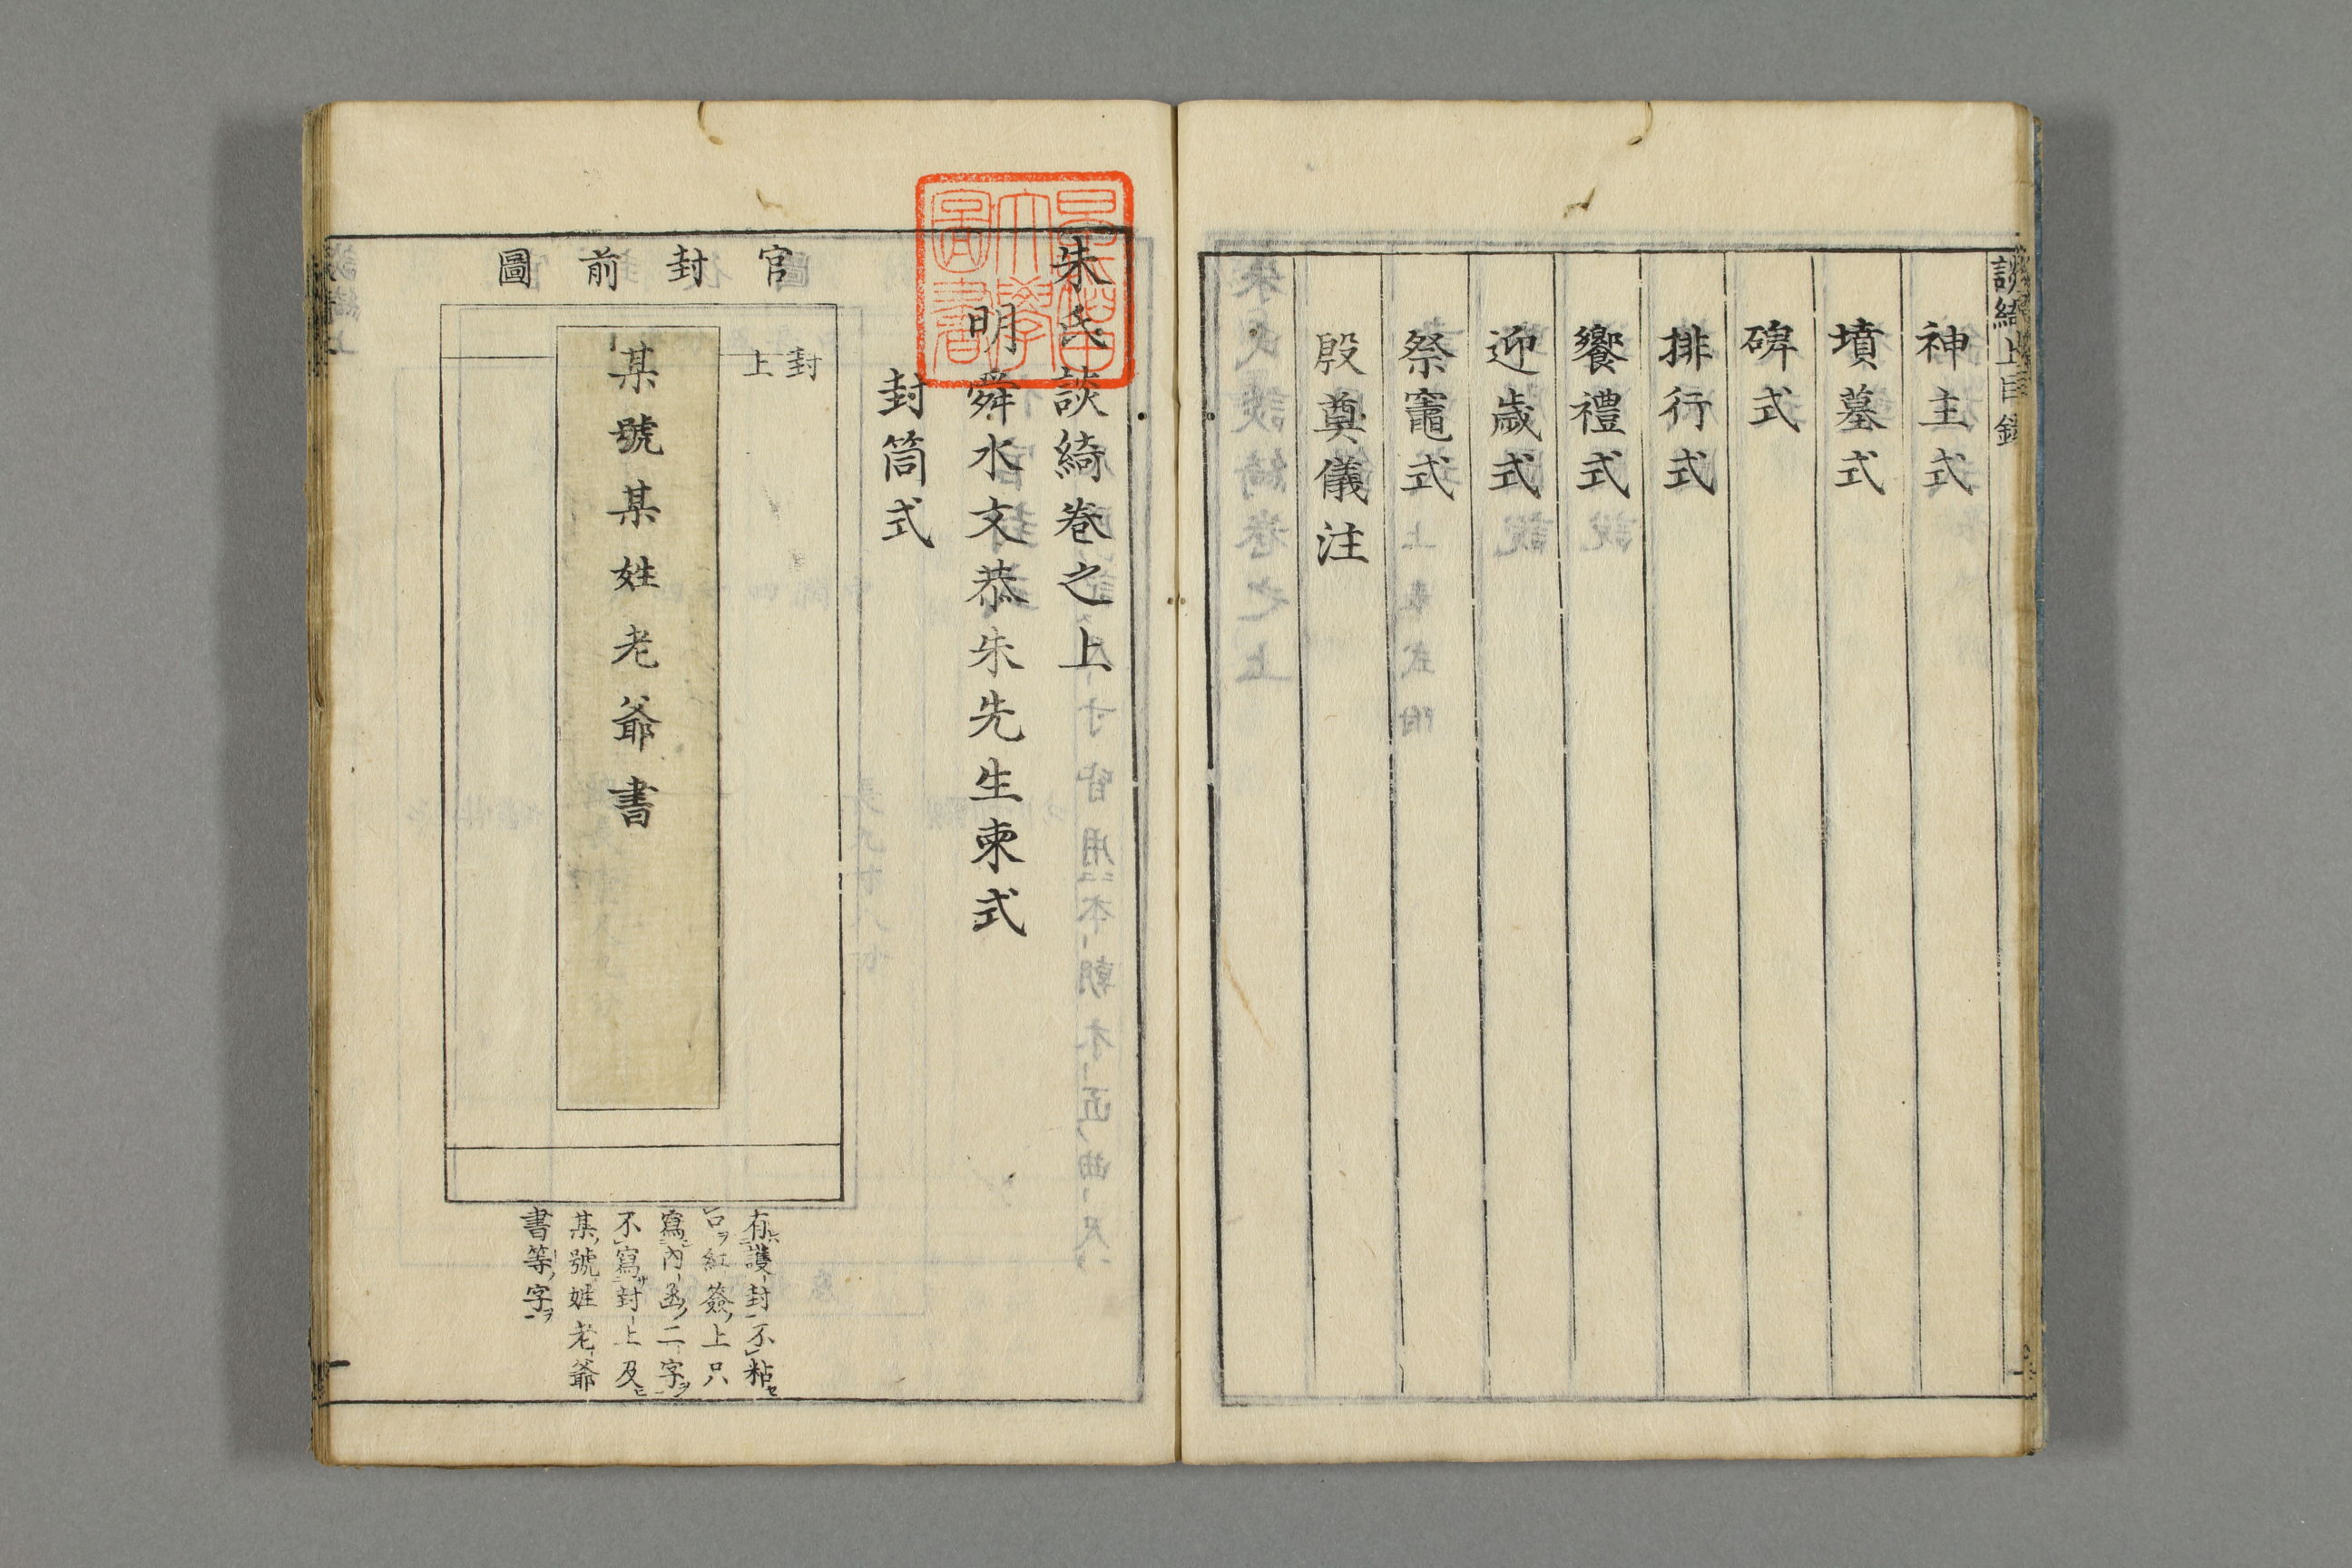 談綺上目錄
神主式
墳墓式
碑式
排行式
饗禮式
迎歲式
祭竈式
殷奠儀注
朱氏談綺卷之上
明 舜水文恭朱先生柬式
封筒式
官封前圖
封上
某號某姓老爺書
有護封不粘
口紅簽上只
寫內函二字
不寫封上及
某號姓老爺
書等字
早稻田大學圖書